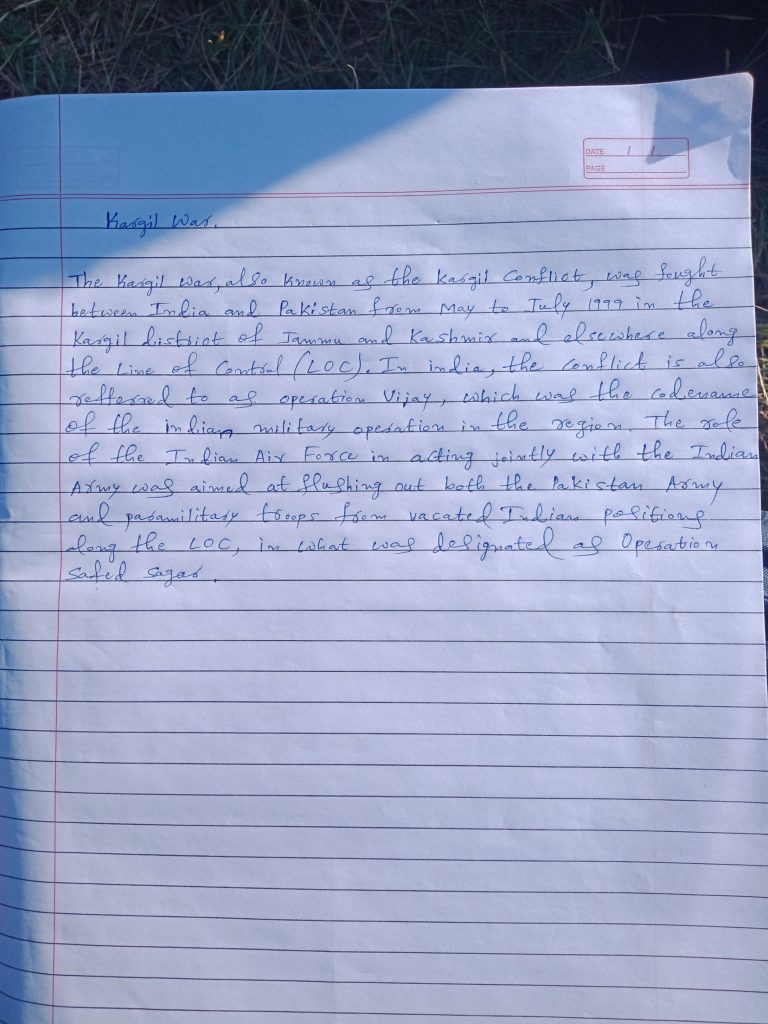 DATE / /
PAGE
Kargil War.
The Kargil war, also known as the Kargil Conflict, was fought
between India and Pakistan from May to July 1999 in the
Kargil district of Jammu and Kashmir and elsewhere along
the Line of Control (LOC). In india, the conflict is also
refferred to as operation Vijay, which was the codename
of the indian military operation in the region. The role
of the Indian Air Force in acting jointly with the Indian
Army was aimed at flushing out both the Pakistan Army
and paramilitary troops from vacated Indian positions
along the LOC, in what was designated as Operation
Safed Sagar.